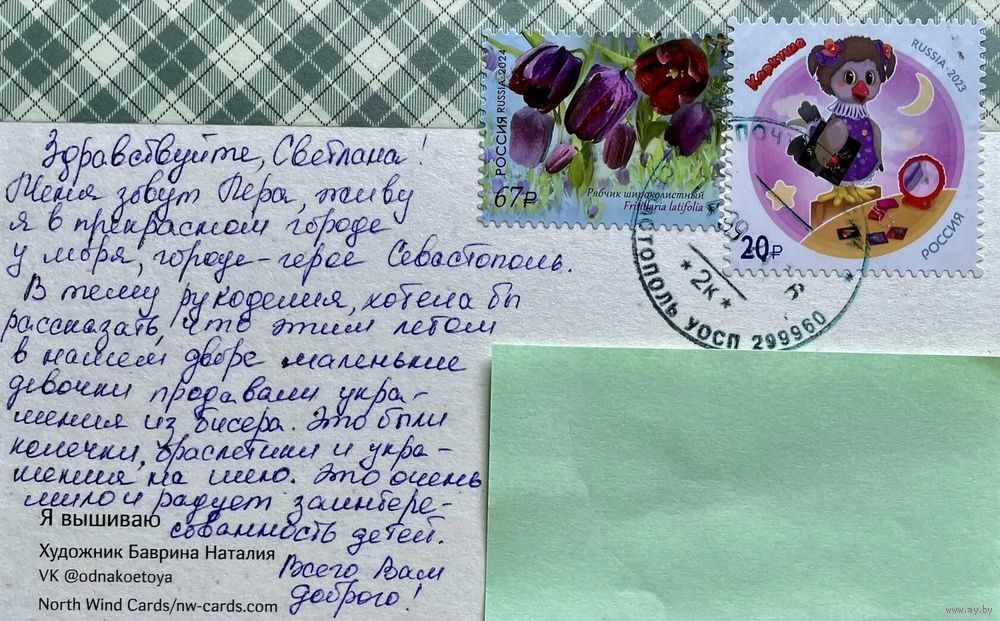 Здравствуйте, Светлана!
Меня зовут Вера, живу
я в прекрасном городе
у моря, городе-герое Севастополь.
В тему рукоделия, хотела бы
рассказать, что этим летом
в нашем дворе маленькие
девочки продавали укра-
шения из бисера. Это были
колечки, браслетики и укра-
шения на шею. Это очень
мило и радует заинтере-
сованность детей.
Всего Вам
доброго!
Я вышиваю
Художник Баврина Наталия
VK @odnakoetoya
North Wind Cards/nw-cards.com
РОССИЯ RUSSIA·2024
67₽
Рябчик широколистный
Fritillaria latifolia
Каркуша
RUSSIA·2023
20₽
РОССИЯ
СТОПОЛЬ УОСП 299960
*2к*
www.ay.by